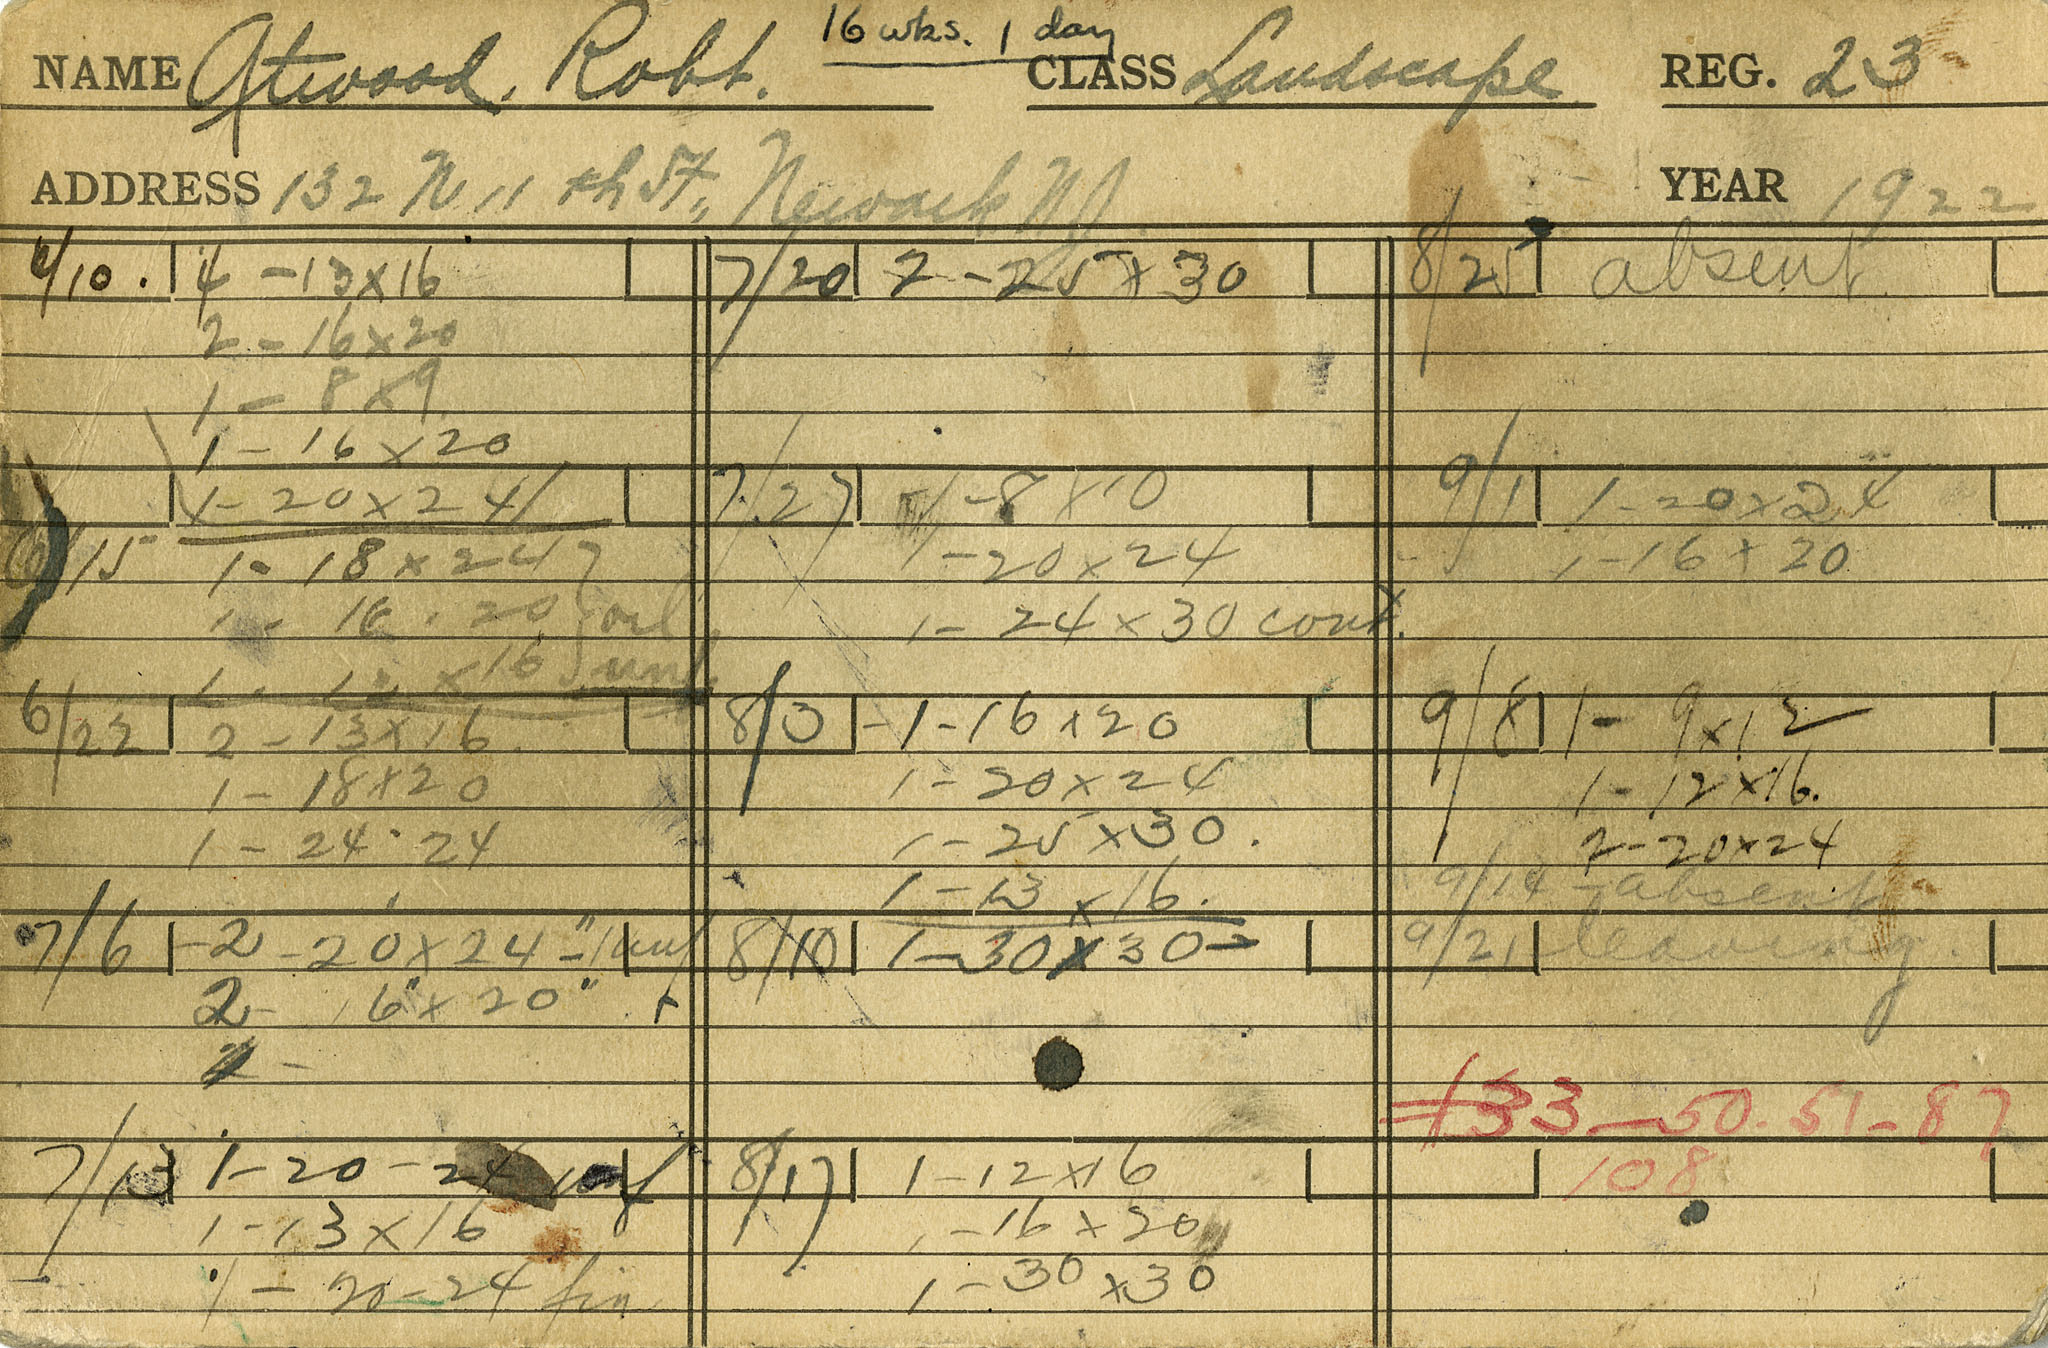 16 wks. 1 day
NAME Atwood, Robt. CLASS Landscape REG. 23
ADDRESS 132 N 11th St., Newark NJ. YEAR 1922
6/10. 4 - 13x16
2 - 16x20
1 - 8x9
1 - 16x20
1 - 20x24
6/15 1 - 18x24
1 - 16 . 20 oil
1 - 12x16 unf
6/22 2 - 13x16.
1 - 18x20
1 - 24 . 24
7/6 - 2 - 20x24" - 1 unf
2 - 16"x20"
7/13 1 - 20 - 24 unf
1 - 13x16
1 - 20 - 24 fin
7/20 2 - 25x30
7/27 1 - 8x10
1 - 20x24
1 - 24x30 cont.
8/3 - 1 - 16x20
1 - 20x24
1 - 25x30.
1 - 13x16.
8/10 1 - 30x30
8/17 1 - 12x16
1 - 16x20
1 - 30x30
8/25 absent
9/1 1 - 20x24
1 - 16x20
9/8 1 - 9x12
1 - 12x16.
2 - 20x24
9/14 - absent
9/21 leaving.
33 - 50. 51 - 87
108